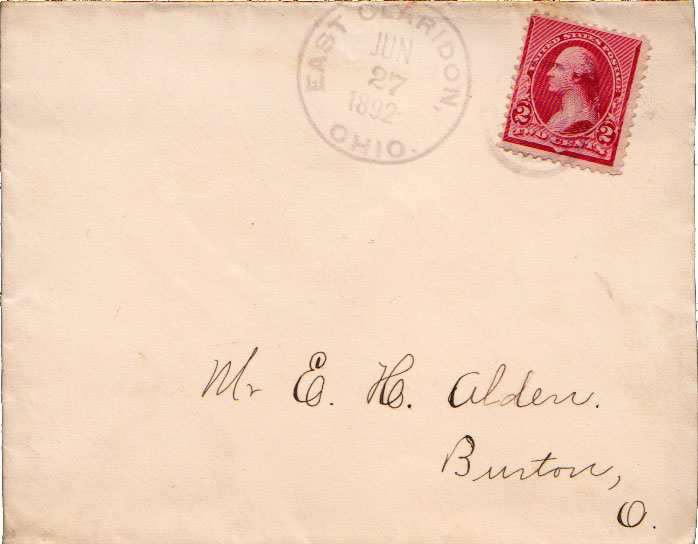 EAST CLARIDON,
JUN
27
1892
OHIO.
UNITED STATES POSTAGE
2 2
TWO CENTS
Mr E. H. Alden.
Burton,
O.